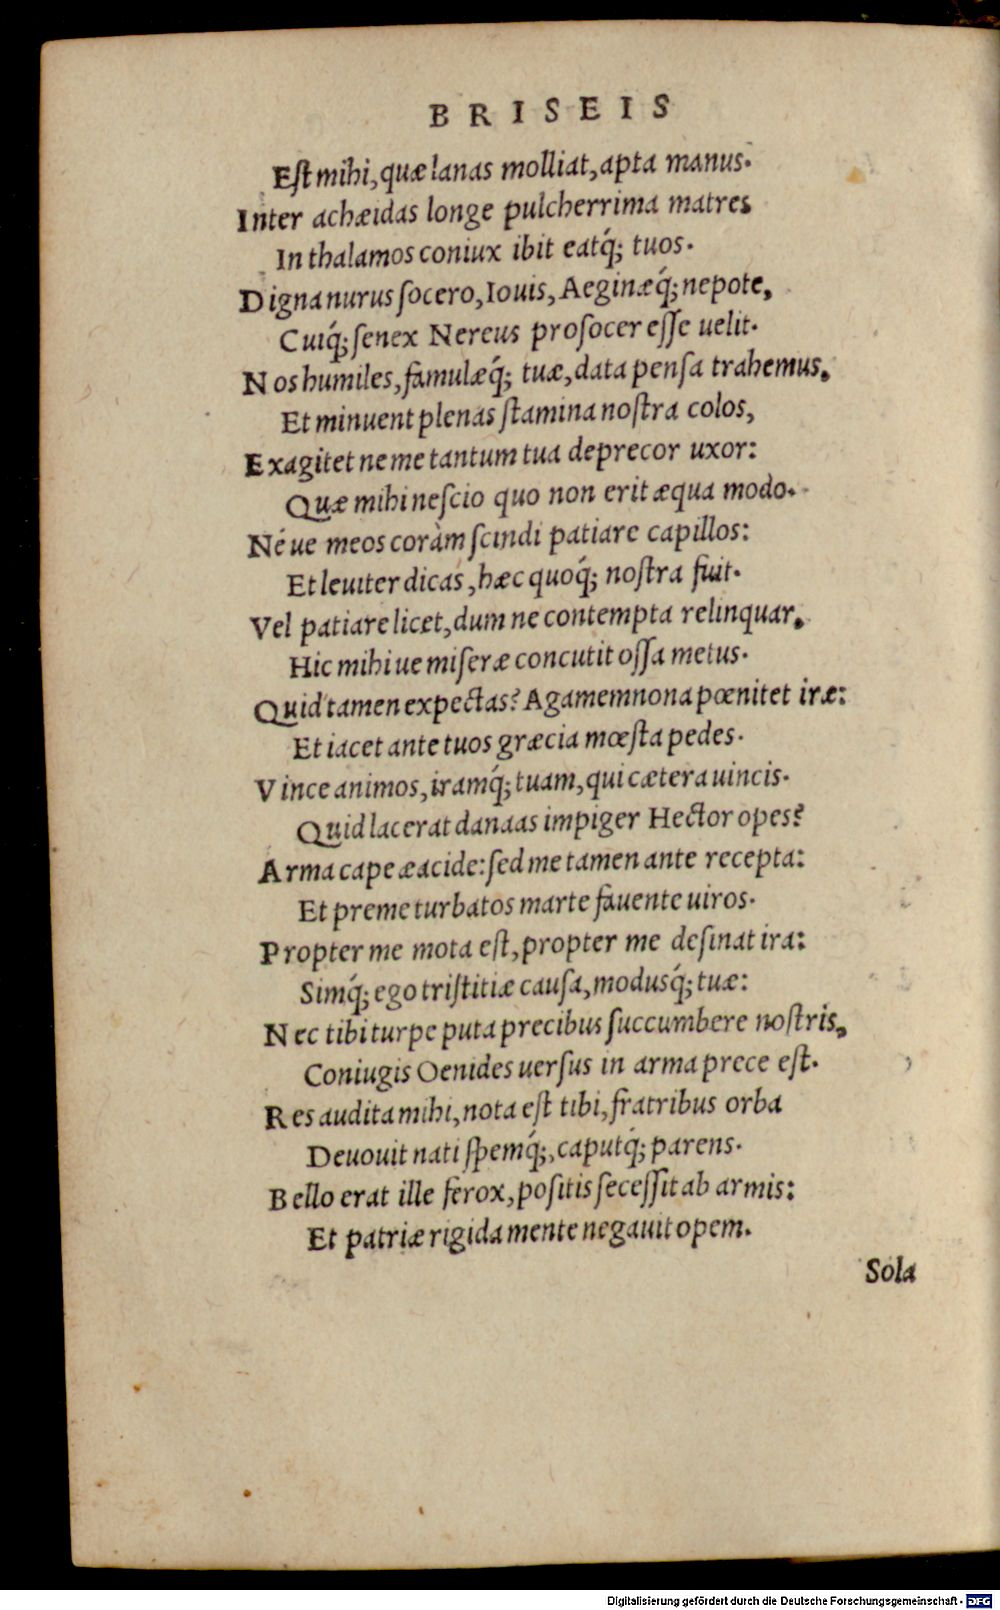 BRISEIS
Eſt mihi, quæ lanas molliat, apta manus.
Inter achæidas longe pulcherrima matres
In thalamos coniux ibit eatq́; tuos.
Digna nurus ſocero, Iouis, Aeginæq́; nepote,
Cuiq́; ſenex Nereus proſocer eſſe uelit.
Nos humiles, famulæq́; tuæ, data penſa trahemus,
Et minuent plenas ſtamina noſtra colos,
Exagitet ne me tantum tua deprecor uxor:
Quæ mihi neſcio quo non erit æqua modo.
Néue meos coràm ſcindi patiare capillos:
Et leuiter dicas, hæc quoq́; noſtra fuit.
Vel patiare licet, dum ne contempta relinquar,
Hic mihi ue miſeræ concutit oſſa metus.
Quid tamen expectas? Agamemnona pœnitet iræ:
Et iacet ante tuos græcia mœſta pedes.
Vince animos, iramq́; tuam, qui cætera uincis.
Quid lacerat danaas impiger Hector opes?
Arma cape æacide: ſed me tamen ante recepta:
Et preme turbatos marte fauente uiros.
Propter me mota eſt, propter me deſinat ira:
Simq́; ego triſtitiæ cauſa, modusq́; tuæ:
Nec tibi turpe puta precibus ſuccumbere noſtris,
Coniugis Oenides uerſus in arma prece eſt.
Res audita mihi, nota eſt tibi, fratribus orba
Deuouit nati ſpemq́;, caputq́; parens.
Bello erat ille ferox, poſitis ſeceſſit ab armis:
Et patriæ rigida mente negauit opem.
Sola
Digitalisierung gefördert durch die Deutsche Forschungsgemeinschaft - DFG